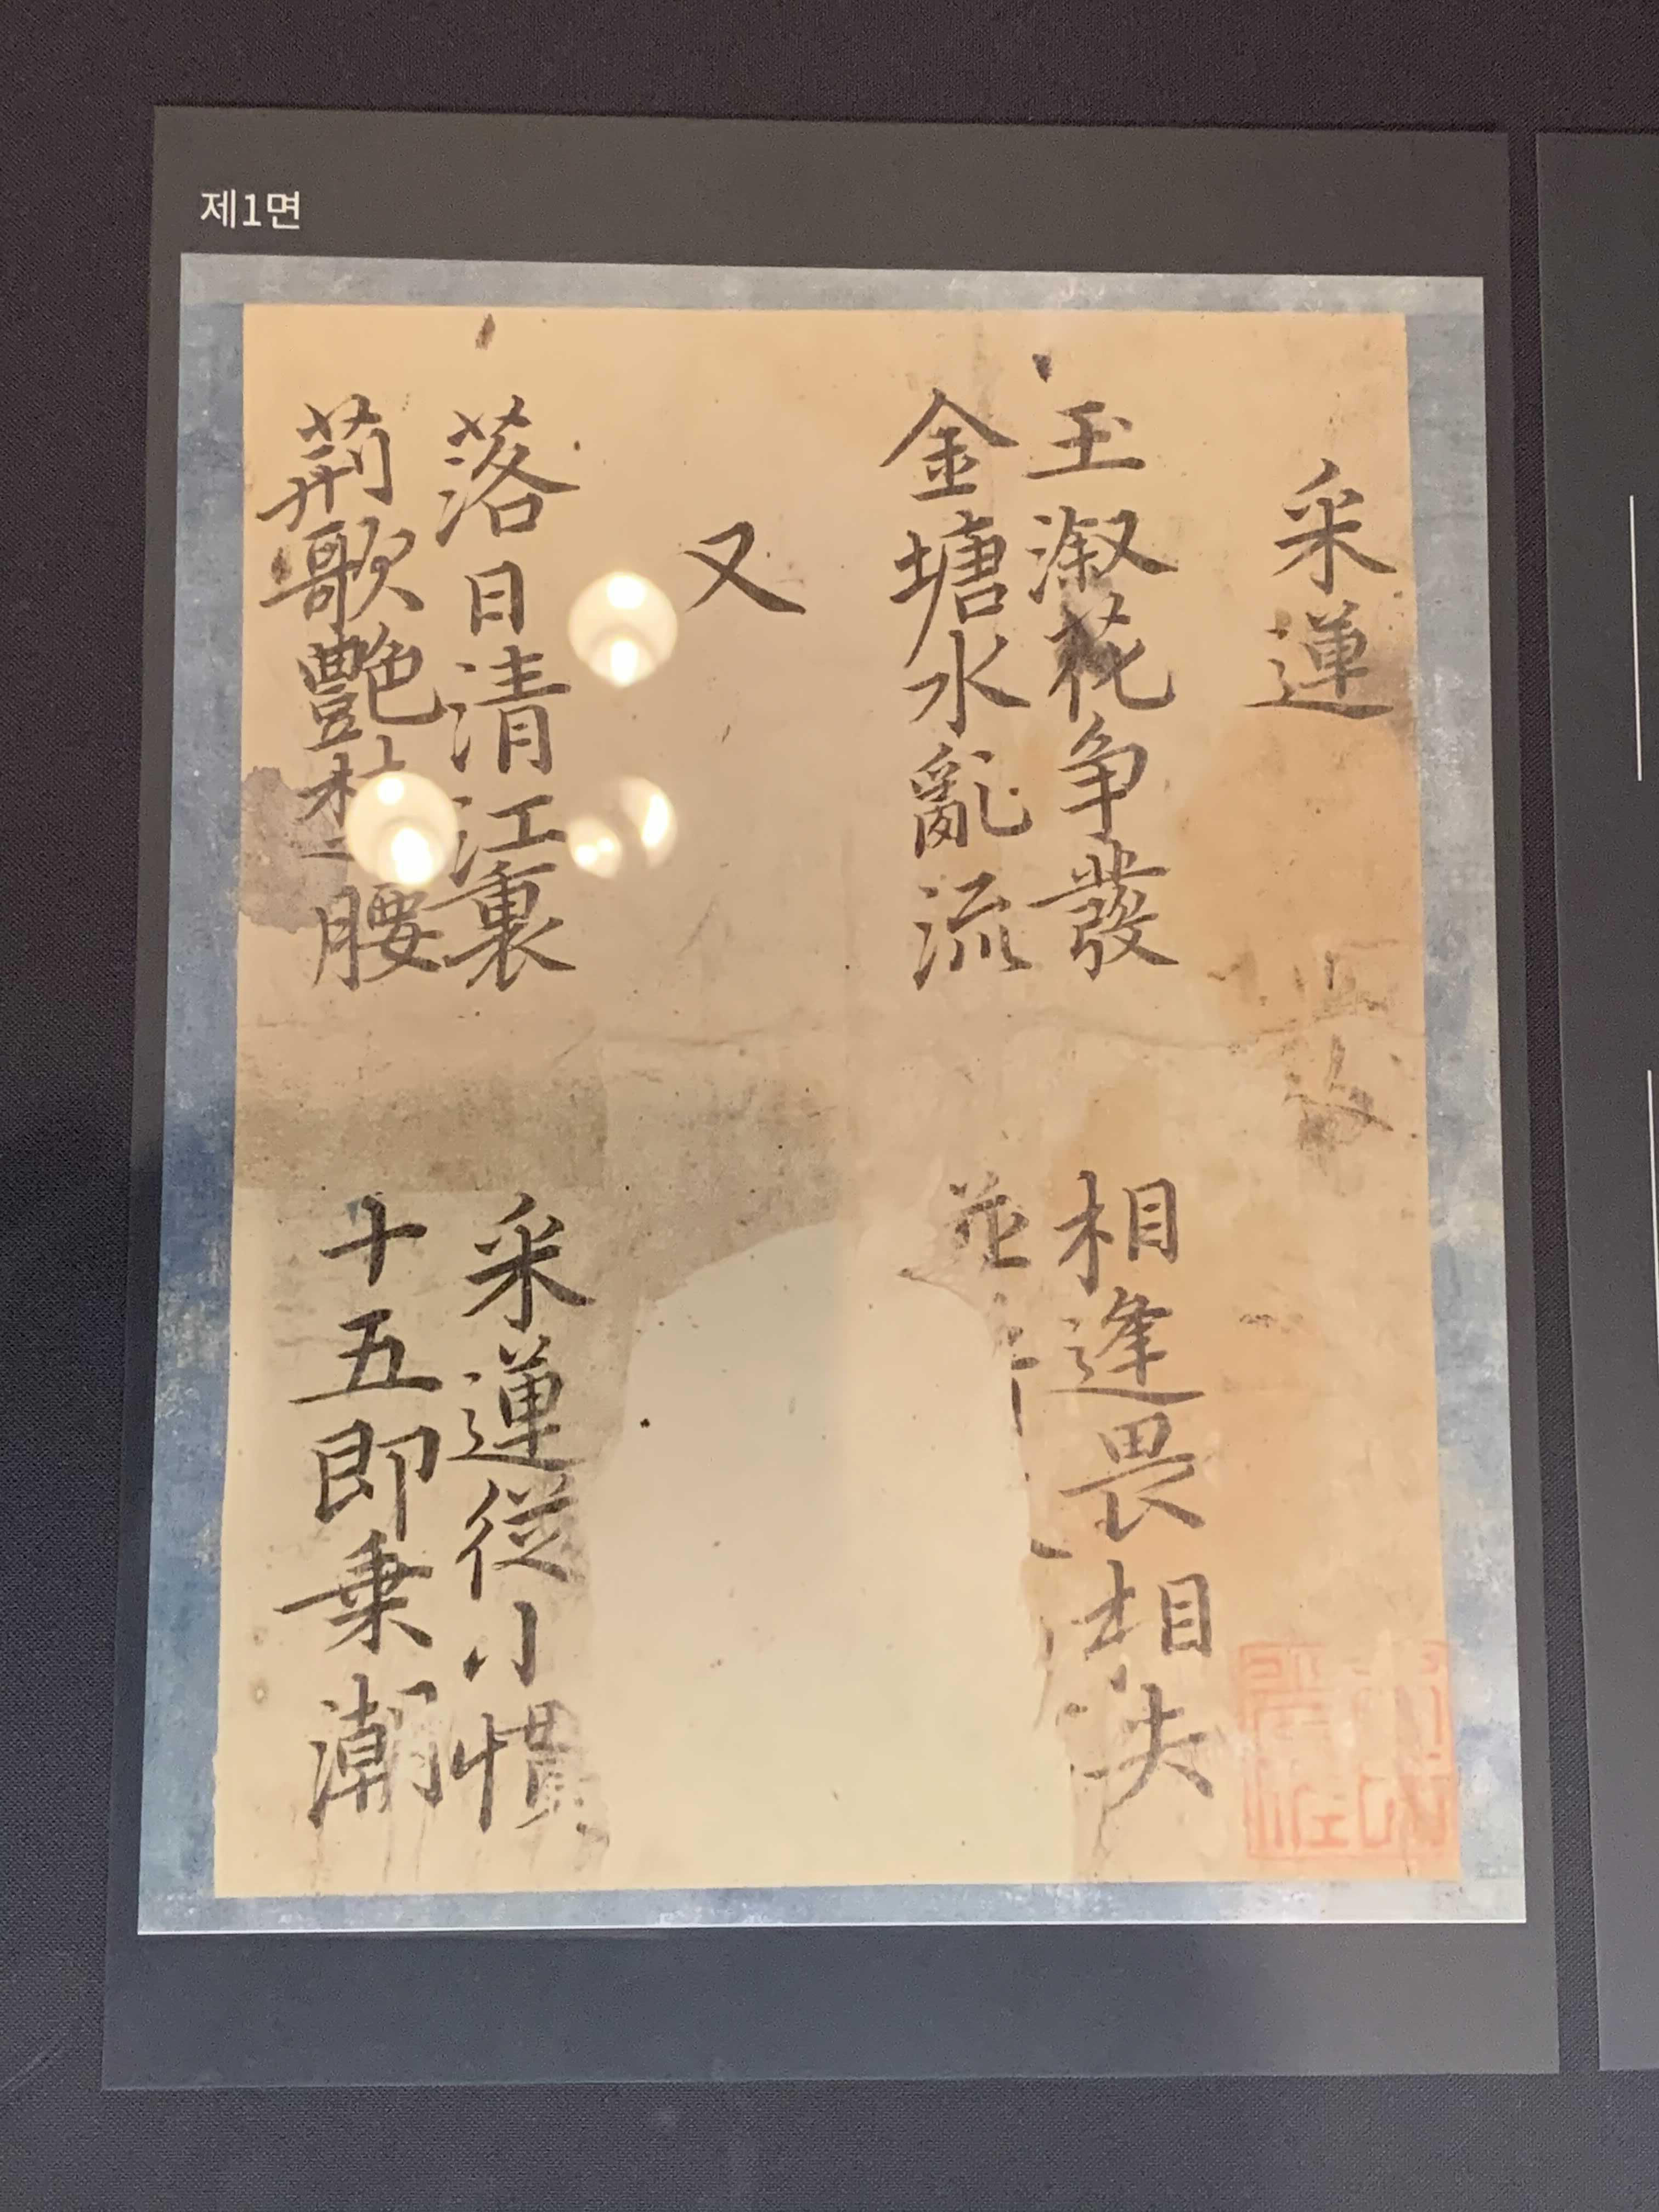 제1면
采蓮
玉漵花争發 相逢畏相失
金塘水亂流 並
又
落日清江裏 采蓮從小慣
荊歌艶 腰 十五即乗潮